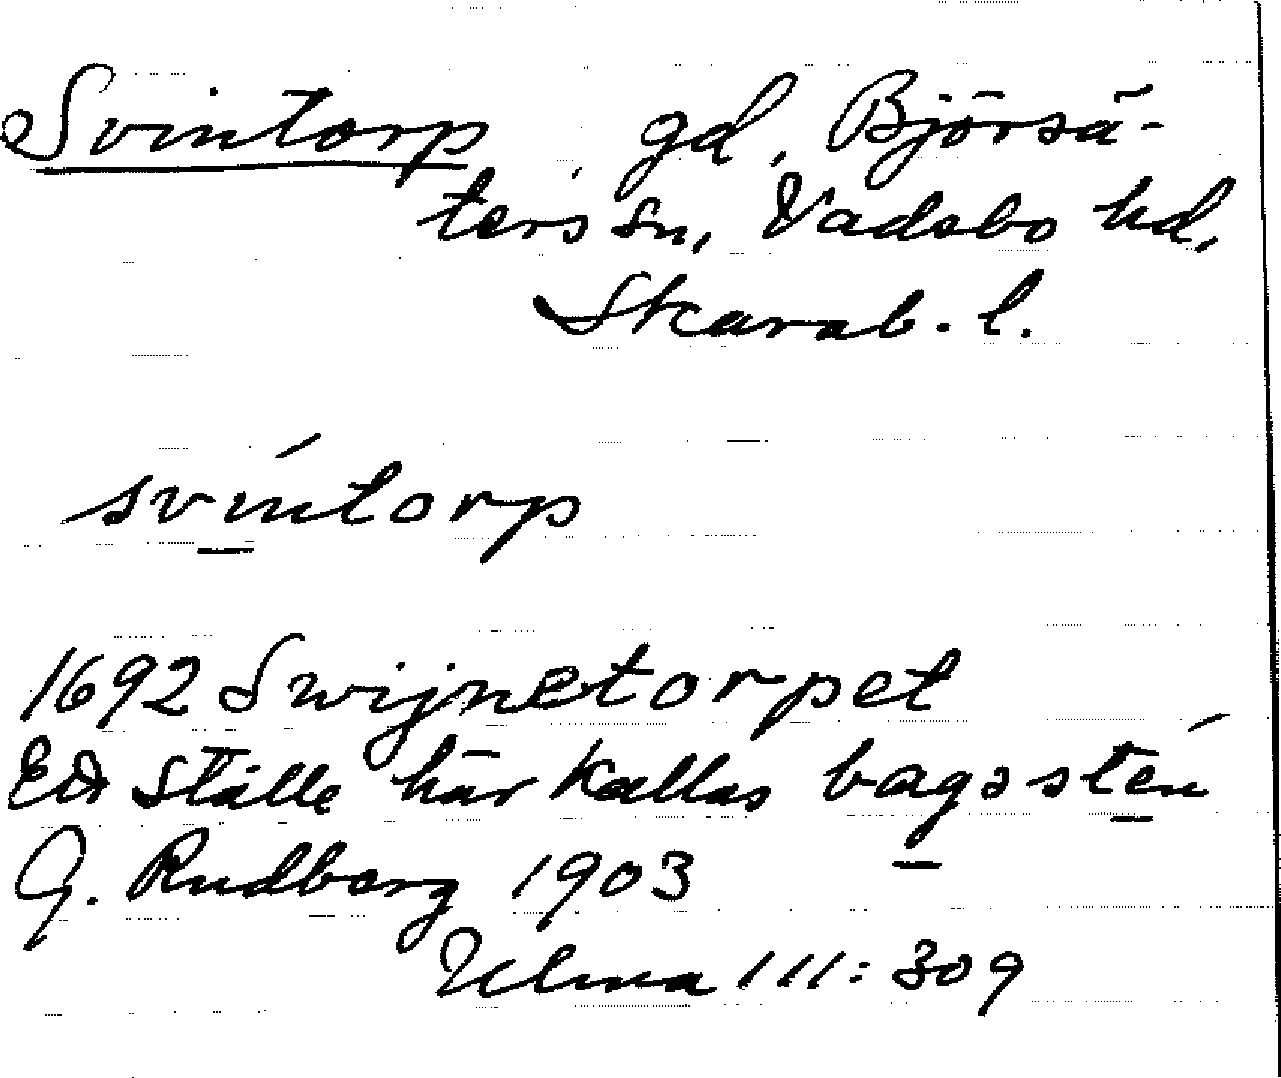 Svintorp gd, Björsä-
ters sn, Vadsbo hd,
Skarab. l.
svíntorp
1692 Swijnetorpet
Ett Ställe här kallas bagsstén
G. Rudberg 1903
Ulma 111:309